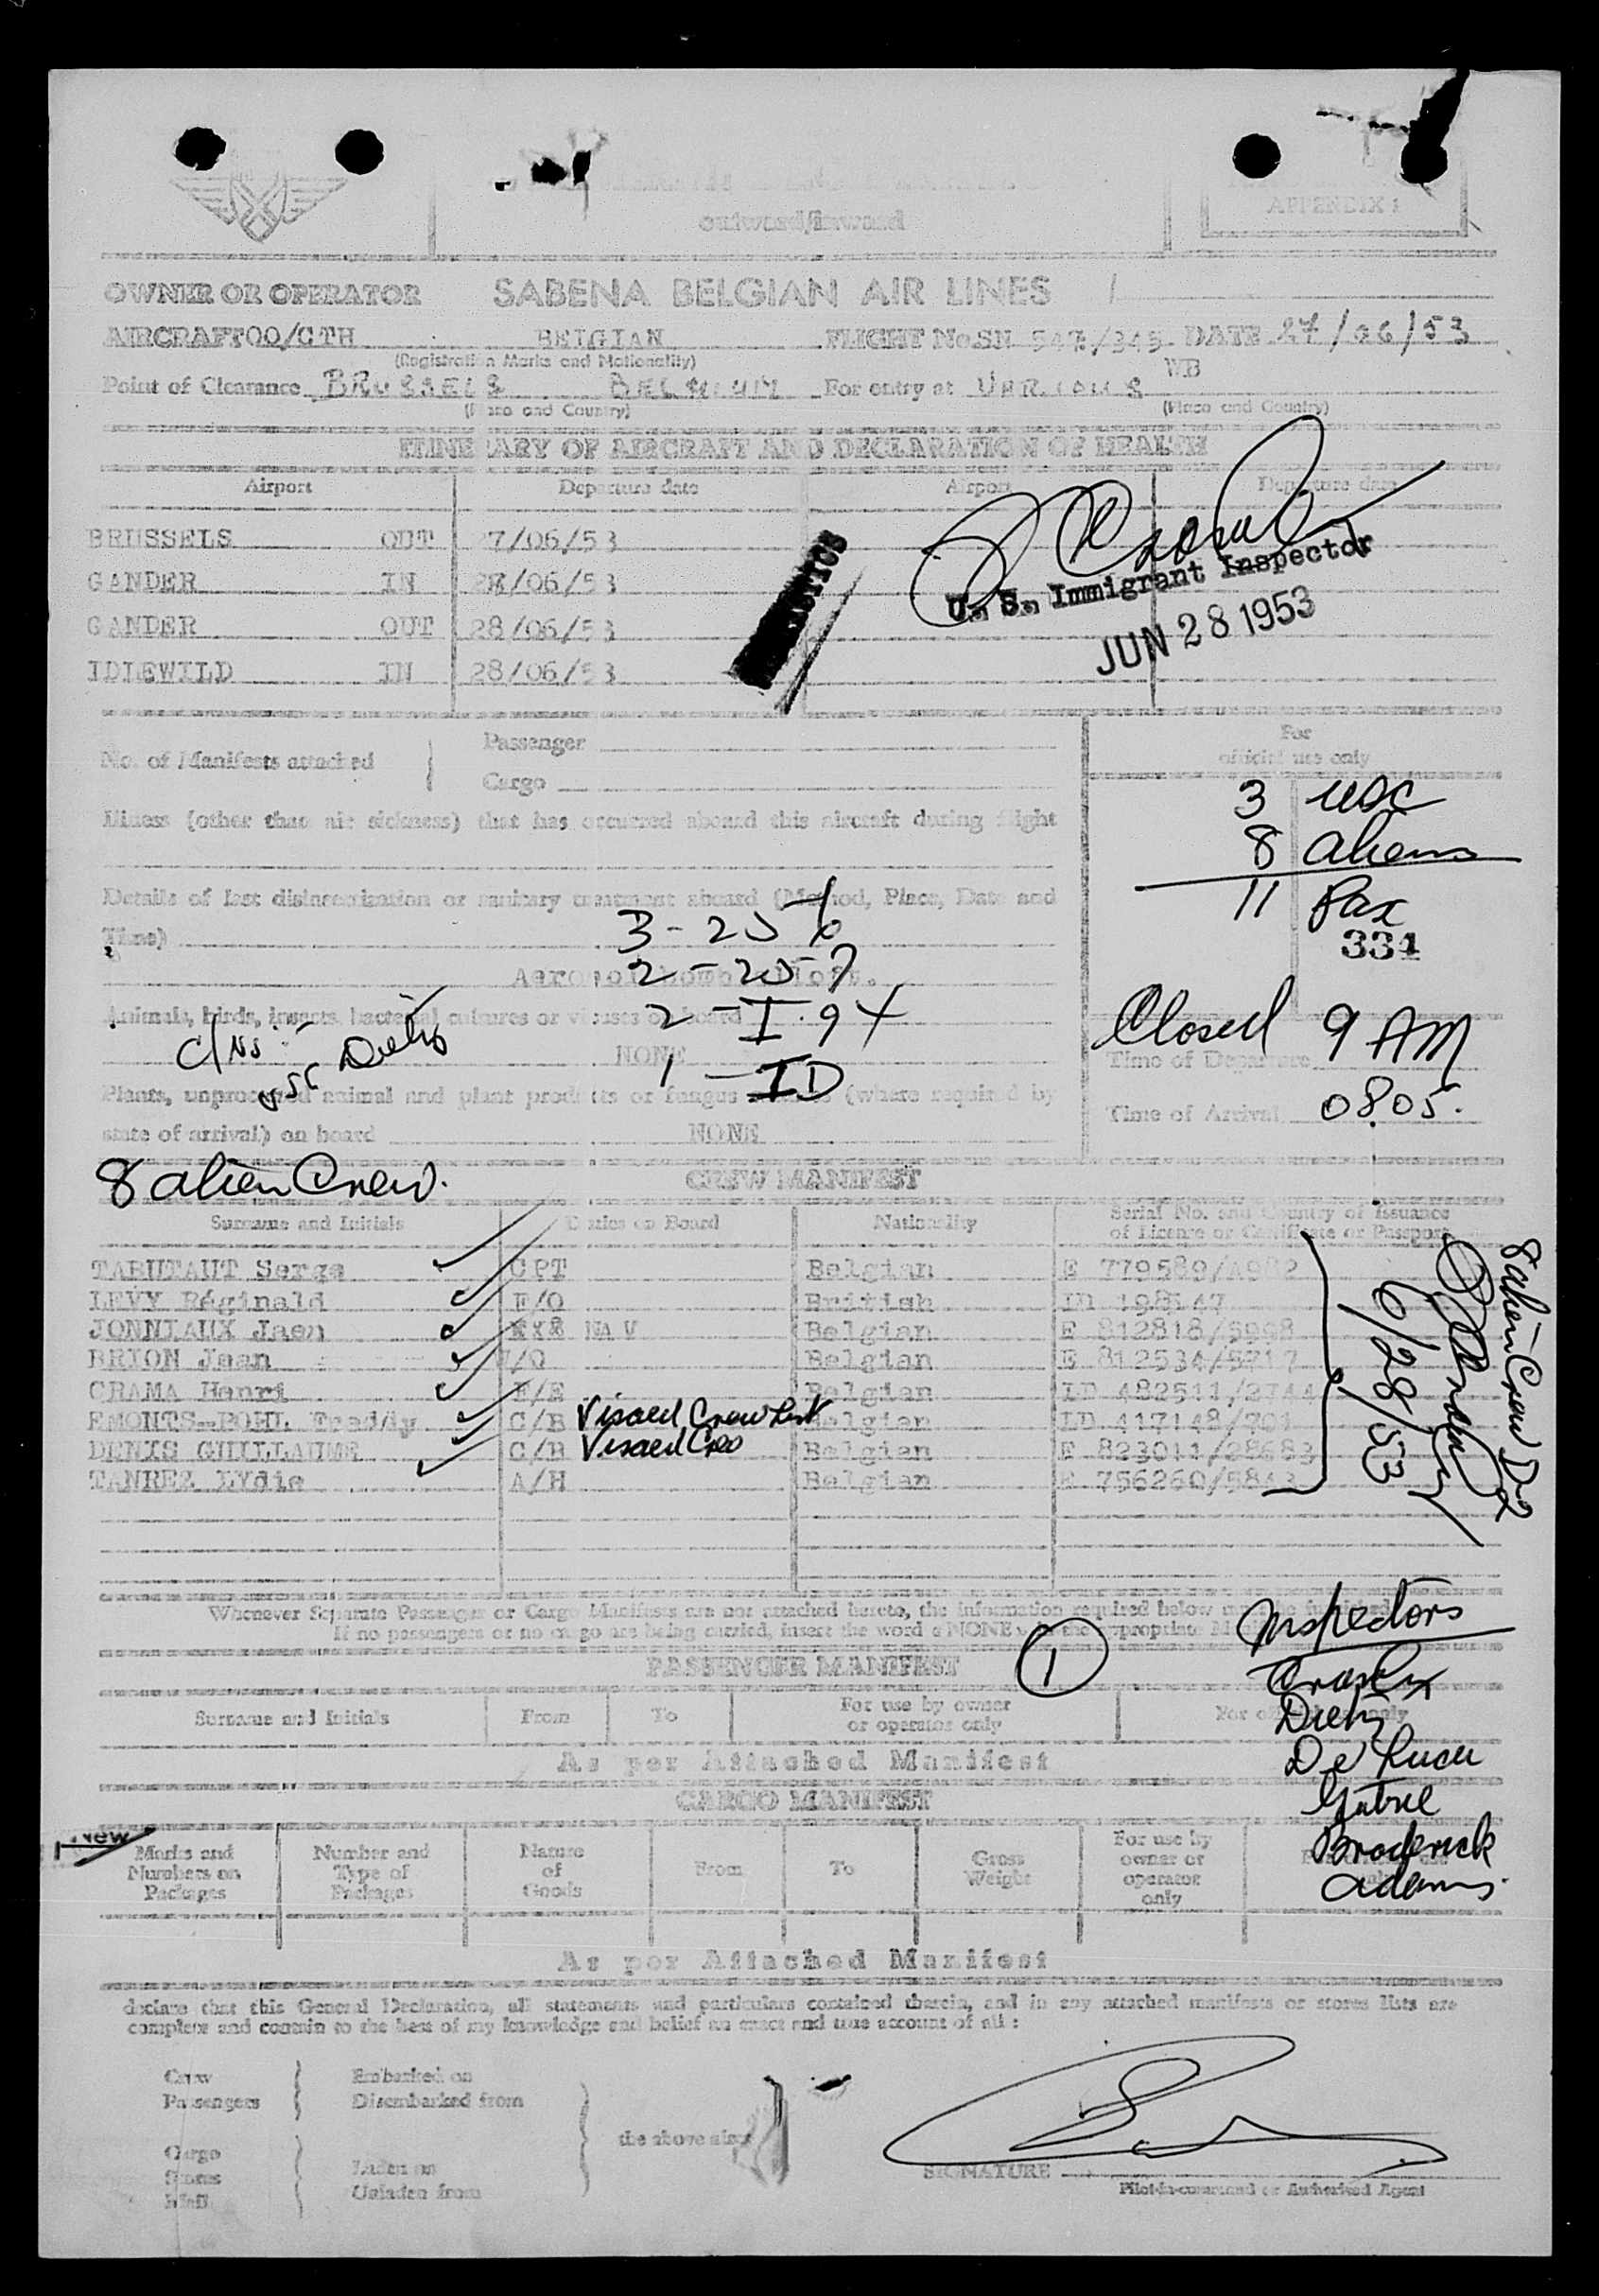 outward/inward
APPENDIX 1
OWNER OR OPERATOR SABENA BELGIAN AIR LINES
AIRCRAFT OO/CTH BELGIAN FLIGHT No SN 547/345 DATE 27/06/53
(Registration Marks and Nationality)
WB
Point of Clearance BRUSSELS BELGIUM For entry at VARIOUS
(Place and Country) (Place and Country)
ITINERARY OF AIRCRAFT AND DECLARATION OF HEALTH
Airport Departure date Airport Departure date
BRUSSELS OUT 27/06/53
GANDER IN 28/06/53
GANDER OUT 28/06/53
IDLEWILD IN 28/06/53
U. S. Immigrant Inspector
JUN 28 1953
No. of Manifests attached
Passenger
Cargo
For
official use only
3 USC
8 aliens
11 Pax
334
Illness (other than air sickness) that has occurred aboard this aircraft during flight
Details of last disinsectization or sanitary treatment aboard (Method, Place, Date and
Time)
3 - 256
2 - 257
2 - I-94
1 - ID
Animals, birds, insects, bacterial cultures or viruses on board
NONE
Plants, unprocessed animal and plant products or fungus (where required by
state of arrival) on board NONE
Closed 9 AM
Time of Departure
Time of Arrival 0805.
8 alien Crew.
CREW MANIFEST
Surname and Initials Duties on Board Nationality Serial No. and Country of Issuance
of License or Certificate or Passport
TABUTAUT Serge CPT Belgian E 779589/A982
LEVY Réginald F/O British ID 198147
JONNIAUX Jaen NAV Belgian E 812818/5998
BRION Jean Belgian E 812534/5717
CRAMA Henri F/E Belgian ID 482511/2744
EMONTS-POHL Freddy C/B Visaed Crew List Belgian ID 417148/701
DENIS GUILLAUME C/B Visaed Belgian E 823011/28683
TANREZ LYdie A/H Belgian E 756260/5843
8 alien Crew D-2
6/28/53
Whenever Separate Passenger or Cargo Manifests are not attached hereto, the information required below must be furnished
If no passengers or no cargo are being carried, insert the word « NONE » in the appropriate
PASSENGER MANIFEST
1
Surname and Initials From To For use by owner
or operator only
As per Attached Manifest
Inspectors
Dietz
De Luca
Broderick
Adams
CARGO MANIFEST
New
Marks and
Numbers on
Packages
Number and
Type of
Packages
Nature
of
Goods
From
To
Gross
Weight
For use by
owner or
operator
only
As per Attached Manifest
declare that this General Declaration, all statements and particulars contained therein, and in any attached manifests or stores lists are
complete and contain to the best of my knowledge and belief an exact and true account of all :
Crew
Passengers
Embarked on
Disembarked from
the above
Cargo
Stores
Mail
Laden on
Unladen from
SIGNATURE
Pilot-in-command or Authorised Agent